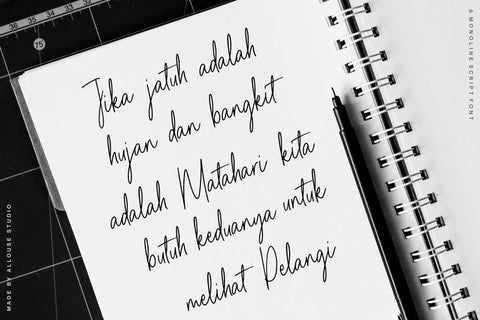 Jika jatuh adalah
hujan dan bangkit
adalah Matahari kita
butuh keduanya untuk
melihat Pelangi
A MONOLINE SCRIPT FONT
MADE BY ALLOUSE STUDIO
36
35
34
33
32
75